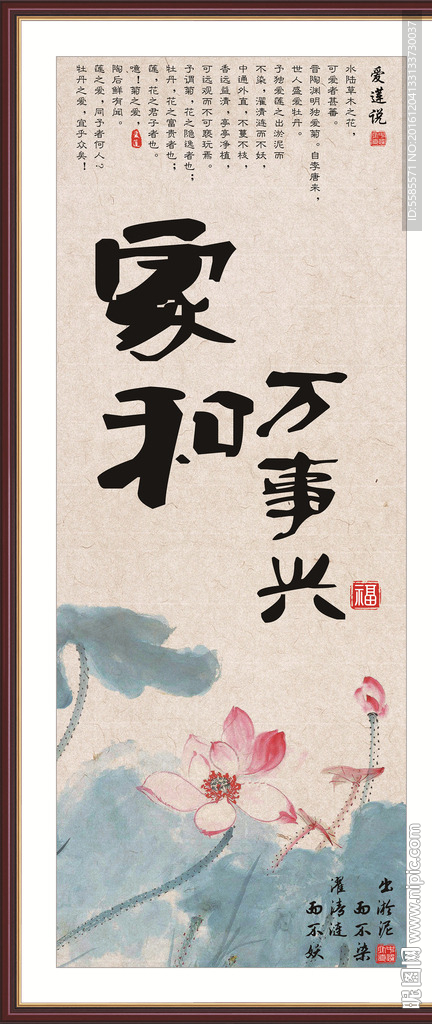 爱莲说
水陆草木之花，
可爱者甚蕃。
晋陶渊明独爱菊。自李唐来，
世人盛爱牡丹。
予独爱莲之出淤泥而
不染，濯清涟而不妖，
中通外直，不蔓不枝，
香远益清，亭亭净植，
可远观而不可亵玩焉。
予谓菊，花之隐逸者也；
牡丹，花之富贵者也；
莲，花之君子者也。
噫！菊之爱，
陶后鲜有闻。
莲之爱，同予者何人？
牡丹之爱，宜乎众矣！
家和
万事兴
福
出淤泥
而不染
濯清涟
而不妖
ID:5585571 NO:20161204133133730037
昵图网 www.nipic.com